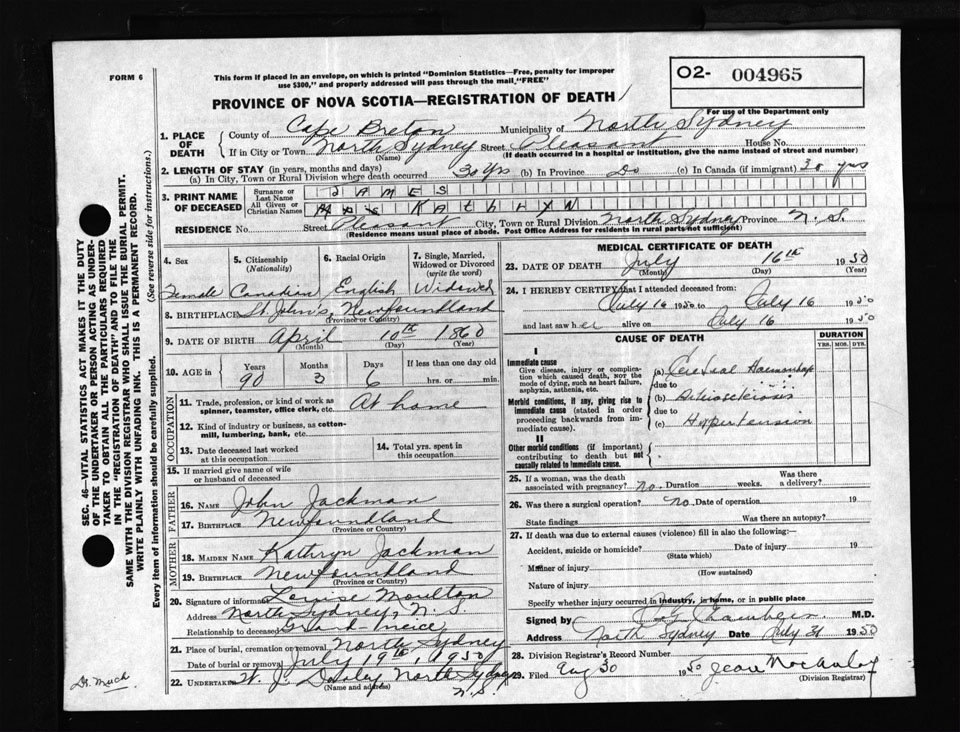 FORM 6
This form if placed in an envelope, on which is printed "Dominion Statistics—Free, penalty for improper
use $300," and properly addressed will pass through the mail "FREE"
O2- 004965
For use of the Department only
PROVINCE OF NOVA SCOTIA—REGISTRATION OF DEATH
1. PLACE OF DEATH
County of Cape Breton Municipality of North Sydney
If in City or Town North Sydney Street Pleasant House No.
(Name) (If death occurred in a hospital or institution, give the name instead of street and number)
2. LENGTH OF STAY (in years, months and days)
(a) In City, Town or Rural Division where death occurred 30 yrs (b) In Province Do (c) In Canada (if immigrant) 30 yrs
3. PRINT NAME OF DECEASED
Surname or Last Name JAMES
All Given or Christian Names Mrs KAthLYN
RESIDENCE No. Street Pleasant City, Town or Rural Division North Sydney Province N.S.
(Residence means usual place of abode. Post Office Address for residents in rural parts not sufficient)
4. Sex
Female
5. Citizenship
(Nationality)
Canadian
6. Racial Origin
English
7. Single, Married,
Widowed or Divorced
(write the word)
Widowed
8. BIRTHPLACE St. John's, Newfoundland
(Province or Country)
9. DATE OF BIRTH April 10th 1860
(Month) (Day) (Year)
10. AGE in
Years Months Days If less than one day old
90 3 6 hrs. or min.
OCCUPATION
11. Trade, profession, or kind of work as
spinner, teamster, office clerk, etc. At home
12. Kind of industry or business, as cotton-
mill, lumbering, bank, etc.
13. Date deceased last worked
at this occupation
14. Total yrs. spent in
this occupation
15. If married give name of wife
or husband of deceased
FATHER
16. NAME John Jackman
17. BIRTHPLACE Newfoundland
(Province or Country)
MOTHER
18. MAIDEN NAME Kathryn Jackman
19. BIRTHPLACE Newfoundland
(Province or Country)
20. Signature of informant Louise Moulton
Address North Sydney, N.S.
Relationship to deceased Grand neice
21. Place of burial, cremation or removal North Sydney
Date of burial or removal July 19th, 1950
22. UNDERTAKER W. J. Dooley North Sydney
(Name and address) N.S.
MEDICAL CERTIFICATE OF DEATH
23. DATE OF DEATH July 16th 1950
(Month) (Day) (Year)
24. I HEREBY CERTIFY that I attended deceased from:
July 16 1950 to July 16 1950
and last saw her alive on July 16 1950
CAUSE OF DEATH
DURATION
YRS. MOS. DYS.
I
Immediate cause
Give disease, injury or complica-
tion which caused death, not the
mode of dying, such as heart failure,
asphyxia, asthenia, etc.
(a) Cerebral Haemorrhage
due to
Morbid conditions, if any, giving rise to
immediate cause (stated in order
proceeding backwards from im-
mediate cause).
(b) Arteriosclerosis
due to
(c) Hypertension
II
Other morbid conditions (if important)
contributing to death but not
causally related to immediate cause.
25. If a woman, was the death
associated with pregnancy? no. Duration weeks. Was there
a delivery?
26. Was there a surgical operation? no. Date of operation 19
State findings Was there an autopsy?
27. If death was due to external causes (violence) fill in also the following:—
Accident, suicide or homicide? Date of injury 19
(State which)
Manner of injury
(How sustained)
Nature of injury
Specify whether injury occurred in industry, in home, or in public place
Signed by M.D.
Address North Sydney Date July 31 1950
28. Division Registrar's Record Number
29. Filed Aug 30 1950 Jean MacAulay
(Division Registrar)
SEC. 46—VITAL STATISTICS ACT MAKES IT THE DUTY
OF THE UNDERTAKER OR PERSON ACTING AS UNDER-
TAKER TO OBTAIN ALL THE PARTICULARS REQUIRED
IN THE "REGISTRATION OF DEATH" AND TO FILE THE
SAME WITH THE DIVISION REGISTRAR WHO SHALL ISSUE THE BURIAL PERMIT.
WRITE PLAINLY WITH UNFADING INK. THIS IS A PERMANENT RECORD.
Every item of information should be carefully supplied. (See reverse side for instructions.)